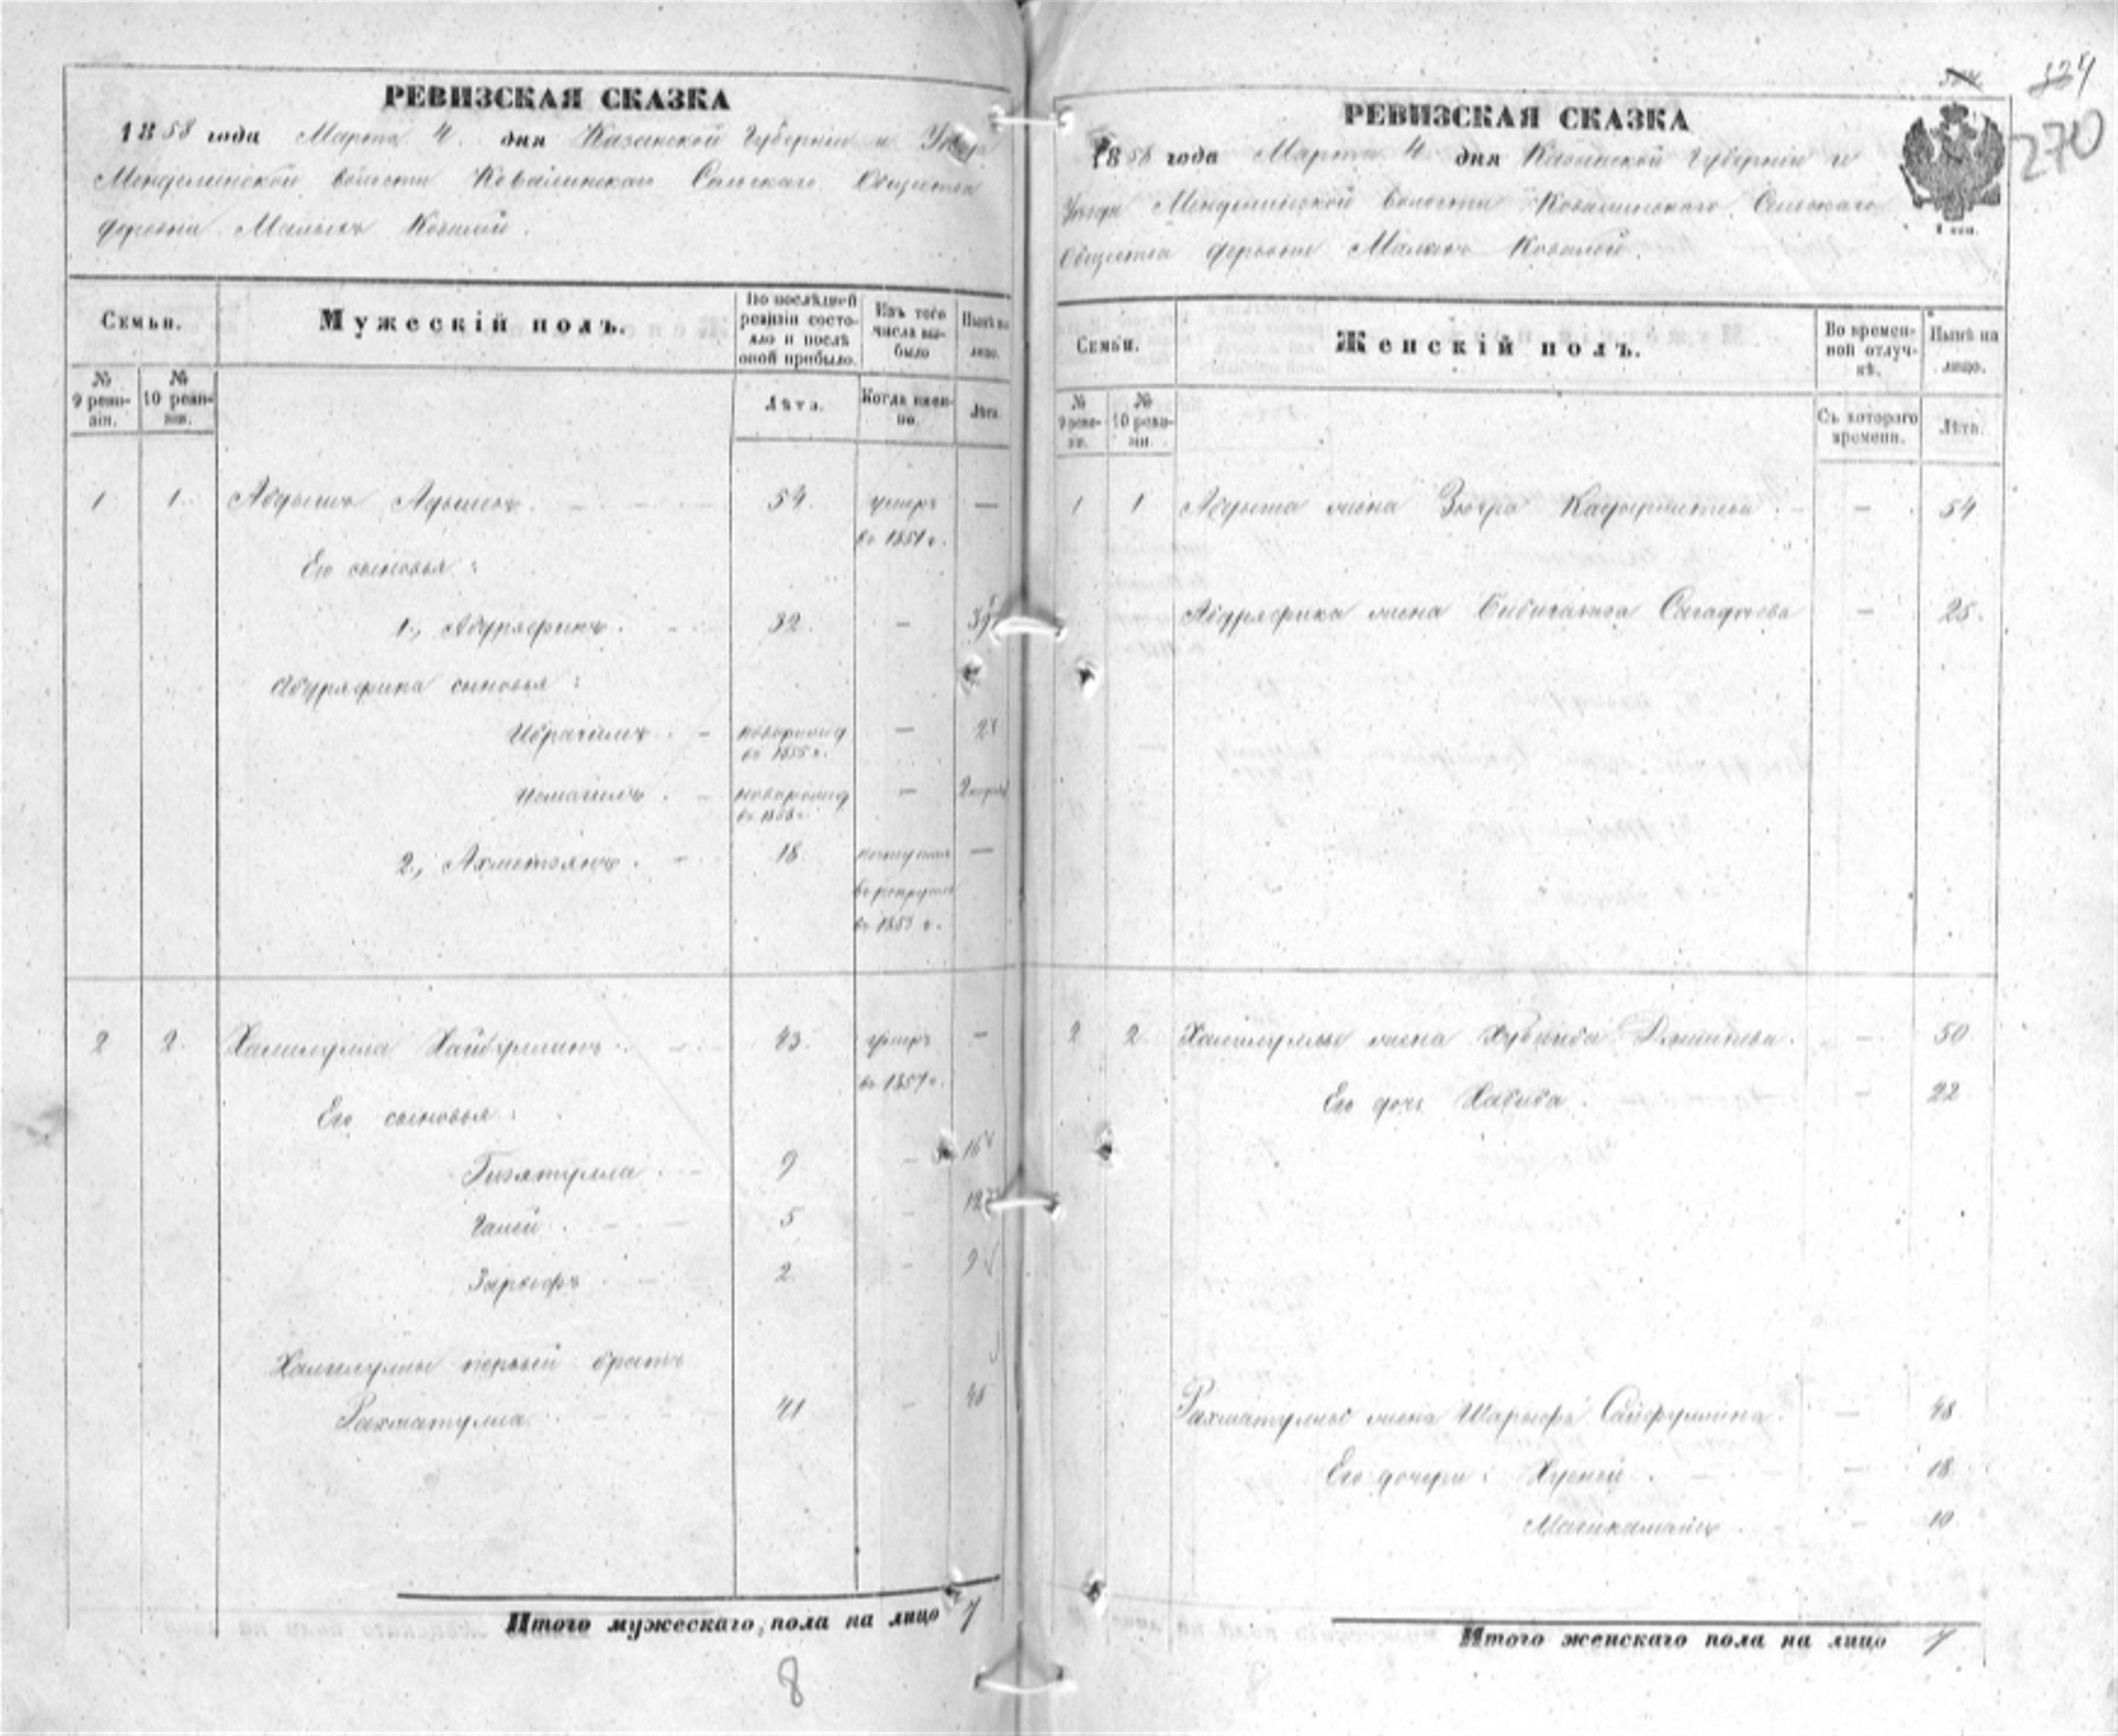 РЕВИЗСКАЯ СКАЗКА
1858 года Марта 4. дня Казанской Губернiи и
Менделинской волости Ковалинскаго Сельскаго Общества
деревни Малыхъ Ковалей.
Семьи.
Мужескiй полъ.
По послѣдней ревизiи состояло и послѣ оной прибыло.
Изъ того числа выбыло
Нынѣ на лицо.
№ 9 ревизiи.
№ 10 ревизiи.
Лѣта.
Когда именно.
Лѣта.
1 1. Абдышъ 54. умеръ —
въ 1851 г.
Его сыновья:
1., Абдряфикъ. 32. —
Абдряфика сыновья:
Ибрагимъ. — новорожд — 2
въ 1855 г.
Исмагилъ. — новорожд —
въ 1858 г.
2., Ахметзянъ. — 18 —
въ рекруты
въ 1853 г.
2 2. Халиулла Хайбуллинъ. 43. умеръ —
въ 1857 г.
Его сыновья:
Гизятулла. — 9 — 16
Галей. — 5 — 12
Зарыфъ — 2. — 9
Халиуллы первый братъ
Рахматулла. 41 —
Итого мужескаго, пола на лицо 7
8
324
270
РЕВИЗСКАЯ СКАЗКА
1858 года Марта 4. дня Казанской Губернiи и
Уѣзда Менделинской волости Ковалинскаго Сельскаго
Общества деревни Малыхъ Ковалей.
Семьи.
Женскiй полъ.
Во временной отлучкѣ.
Нынѣ на лицо.
№ 9 ревизiи.
№ 10 ревизiи.
Съ котораго времени.
Лѣта.
1 1 Абдыша жена Зюгра — 54
Абдряфика жена Бибигайша Сагадеева — 25.
2 2. Халиуллы жена — 50
Его дочь Хабиба. — 22
Рахматуллы жена Шарыфа Сайфуллина. — 48
Его дочери: — 18
Магикамалъ — 10
Итого женскаго пола на лицо 7